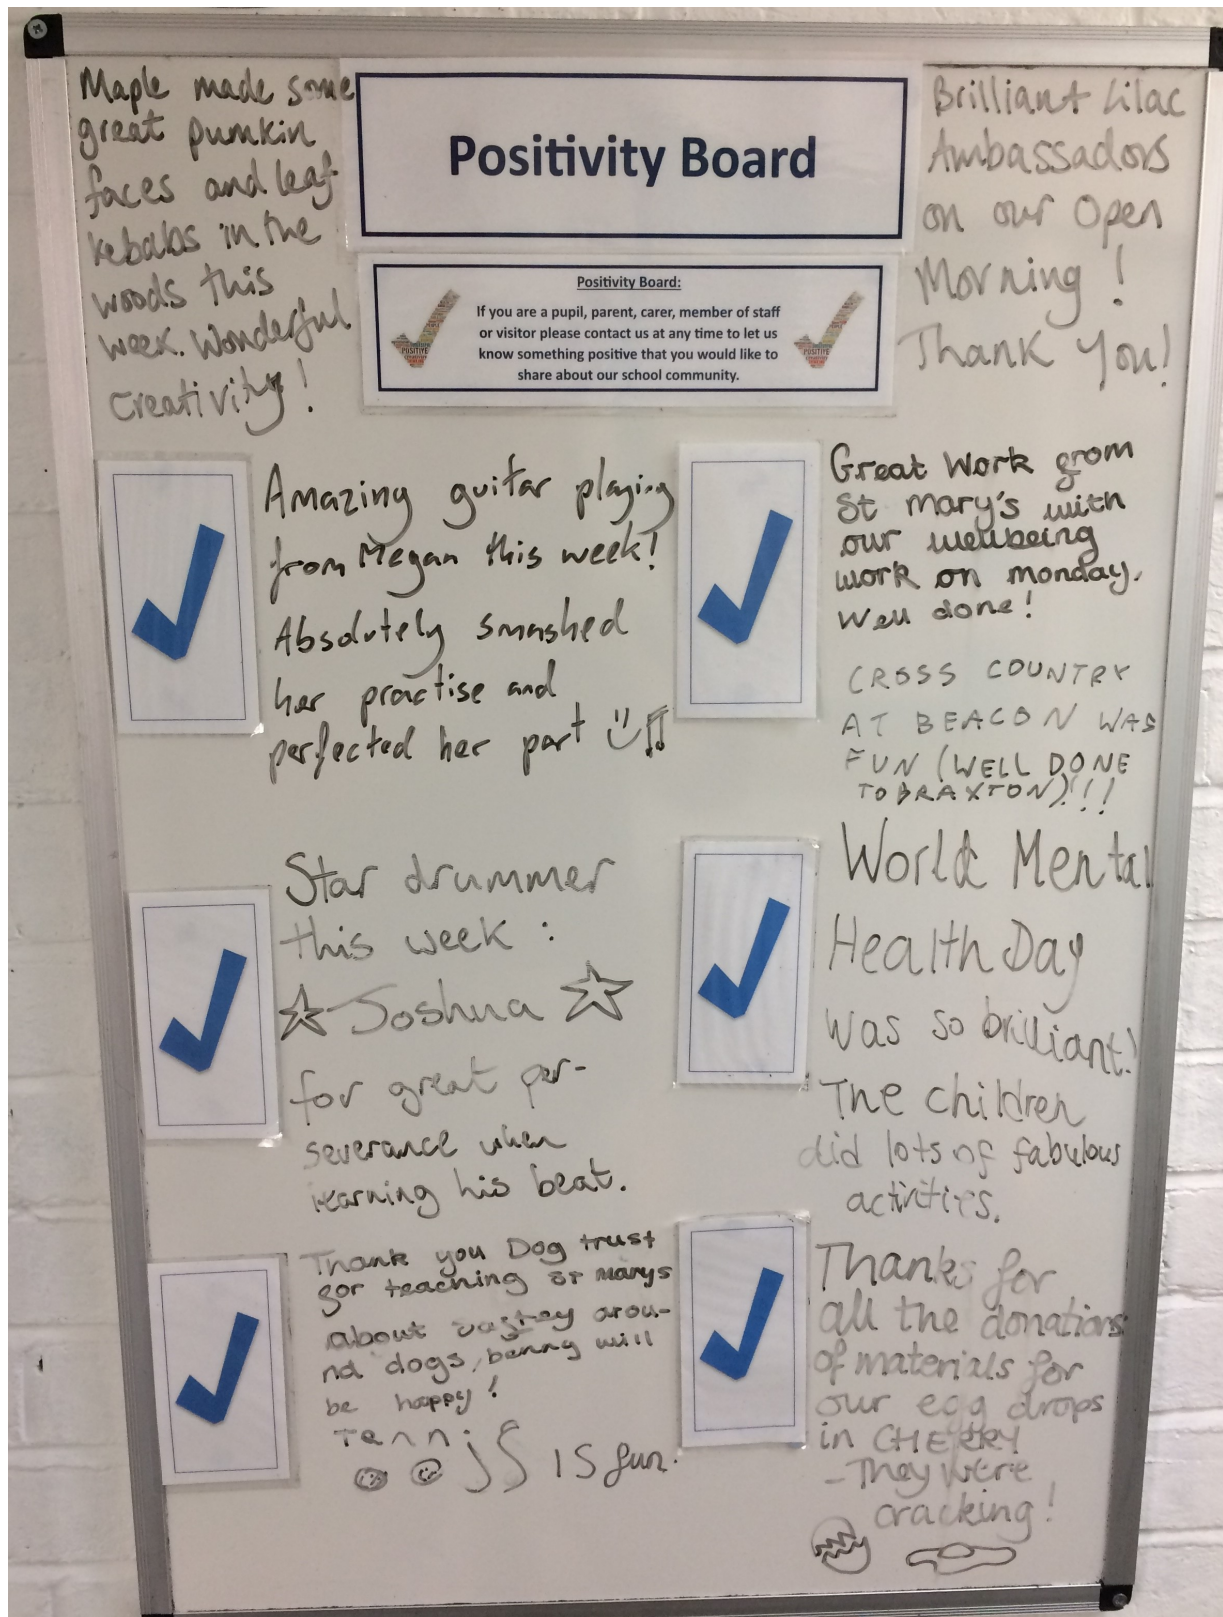 Maple made some
great pumkin
faces and leaf
kebabs in the
woods this
week. Wonderful
Creativity!
Positivity Board
Positivity Board:
If you are a pupil, parent, carer, member of staff
or visitor please contact us at any time to let us
know something positive that you would like to
share about our school community.
POSITIVE
POSITIVE
Brilliant Lilac
Ambassadors
on our Open
Morning!
Thank You!
Amazing guitar playing
from Megan this week!
Absolutely smashed
her practise and
perfected her part
Great Work from
St mary's with
our wellbeing
work on monday.
Well done!
CROSS COUNTRY
AT BEACON WAS
FUN (WELL DONE
TO BRAXTON)!!!
Star drummer
this week :
Joshua
for great per-
severance when
learning his beat.
World Mental
Health Day
was so brilliant!
The children
did lots of fabulous
activities.
Thank you Dog trust
for teaching st marys
about saftey arou-
nd dogs, benny will
be happy!
Tennis is fun.
Thanks for
all the donations
of materials for
our egg drops
in CHERRY
- They were
cracking!